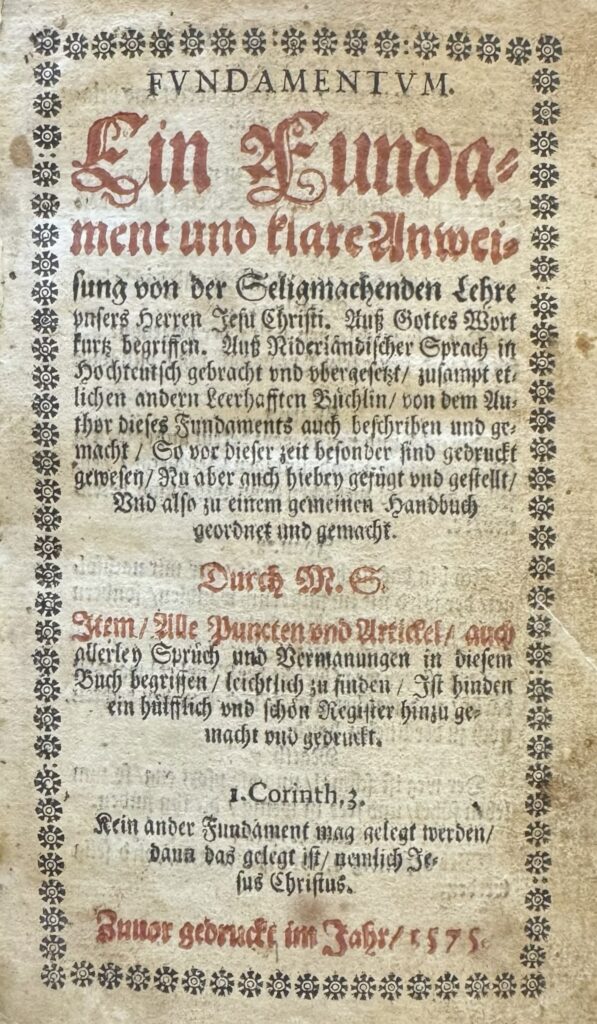 FVNDAMENTVM.
Ein Funda-
ment und klare Anwei-
sung von der Seligmachenden Lehre
vnsers Herren Jesu Christi. Auß Gottes Wort
kurtz begriffen. Auß Niderländischer Sprach in
Hochteutsch gebracht vnd vbergesetzt/ zusampt et-
lichen andern Leerhafften Büchlin/ von dem Au-
thor dieses Fundaments auch beschriben und ge-
macht/ So vor dieser zeit besonder sind gedruckt
gewesen/ Nu aber auch hiebey gefügt vnd gestellt/
Vnd also zu einem gemeinen Handbuch
geordnet und gemacht.
Durch M. S.
Item/ Alle Puncten vnd Artickel/ auch
allerley Sprüch und Vermanungen in diesem
Buch begriffen/ leichtlich zu finden/ Ist hinden
ein hülfflich vnd schön Register hinzu ge-
macht vnd gedruckt.
1. Corinth, 3.
Kein ander Fundament mag gelegt werden/
dann das gelegt ist/ nemlich Je-
sus Christus.
Zuvor gedruckt im Jahr/ 1575.